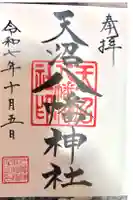 奉拝
天沼八幡神社
令和七年十月五日